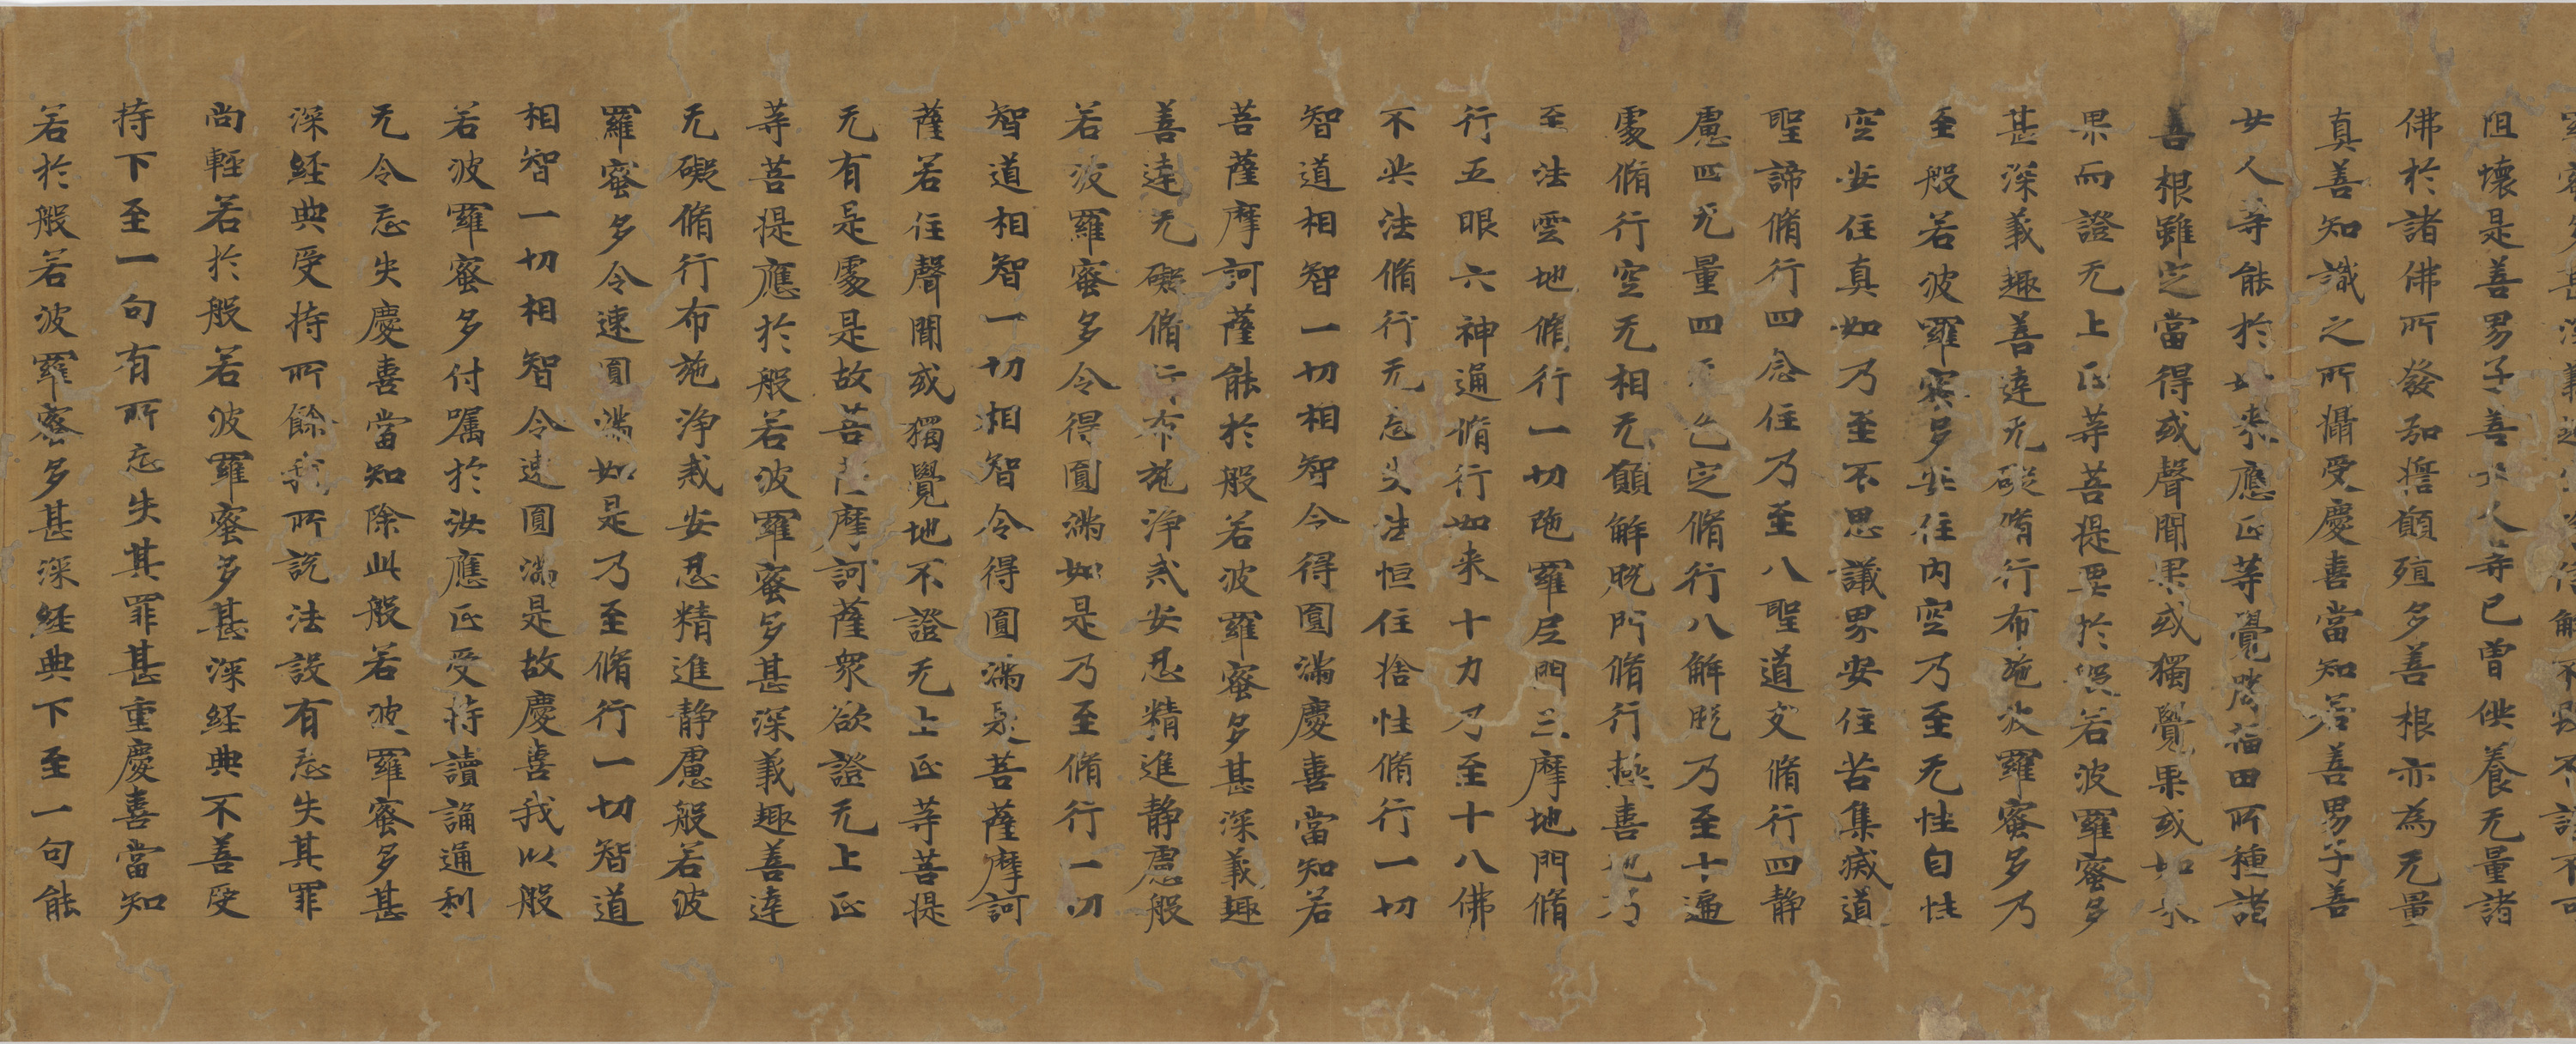 阻壞是善男子善女人等已曽供養无量諸
佛於諸佛所發弘誓願殖多善根亦為无量
真善知識之所攝受慶喜當知若善男子善
女人等能於如來應正等覺勝福田所種諸
善根雖定當得或聲聞果或獨覺果或如來
果而證无上正等菩提要於般若波羅蜜多
甚深義趣善達无礙脩行布施波羅蜜多乃
至般若波羅蜜多安住内空乃至无性自性
空安住真如乃至不思議界安住苦集滅道
聖諦脩行四念住乃至八聖道支脩行四静
慮四无量四无色定脩行八解脱乃至十遍
處脩行空无相无願解脱門脩行極喜地乃
至法雲地脩行一切陁羅尼門三摩地門脩
行五眼六神通脩行如来十力乃至十八佛
不共法脩行无忘失法恒住捨性脩行一切
智道相智一切相智令得圓滿慶喜當知若
菩薩摩訶薩能於般若波羅蜜多甚深義趣
善達无礙脩行布施浄戒安忍精進静慮般
若波羅蜜多令得圓滿如是乃至脩行一切
智道相智一切相智令得圓滿是菩薩摩訶
薩若住聲聞或獨覺地不證无上正等菩提
无有是處是故菩薩摩訶薩衆欲證无上正
等菩提應於般若波羅蜜多甚深義趣善達
无礙脩行布施浄戒安忍精進静慮般若波
羅蜜多令速圓滿如是乃至脩行一切智道
相智一切相智令速圓滿是故慶喜我以般
若波羅蜜多付囑於汝應正受持讀誦通利
无令忘失慶喜當知除此般若波羅蜜多甚
深経典受持所餘我所説法設有忘失其罪
尚輕若於般若波羅蜜多甚深経典不善受
持下至一句有所忘失其罪甚重慶喜當知
若於般若波羅蜜多甚深経典下至一句能